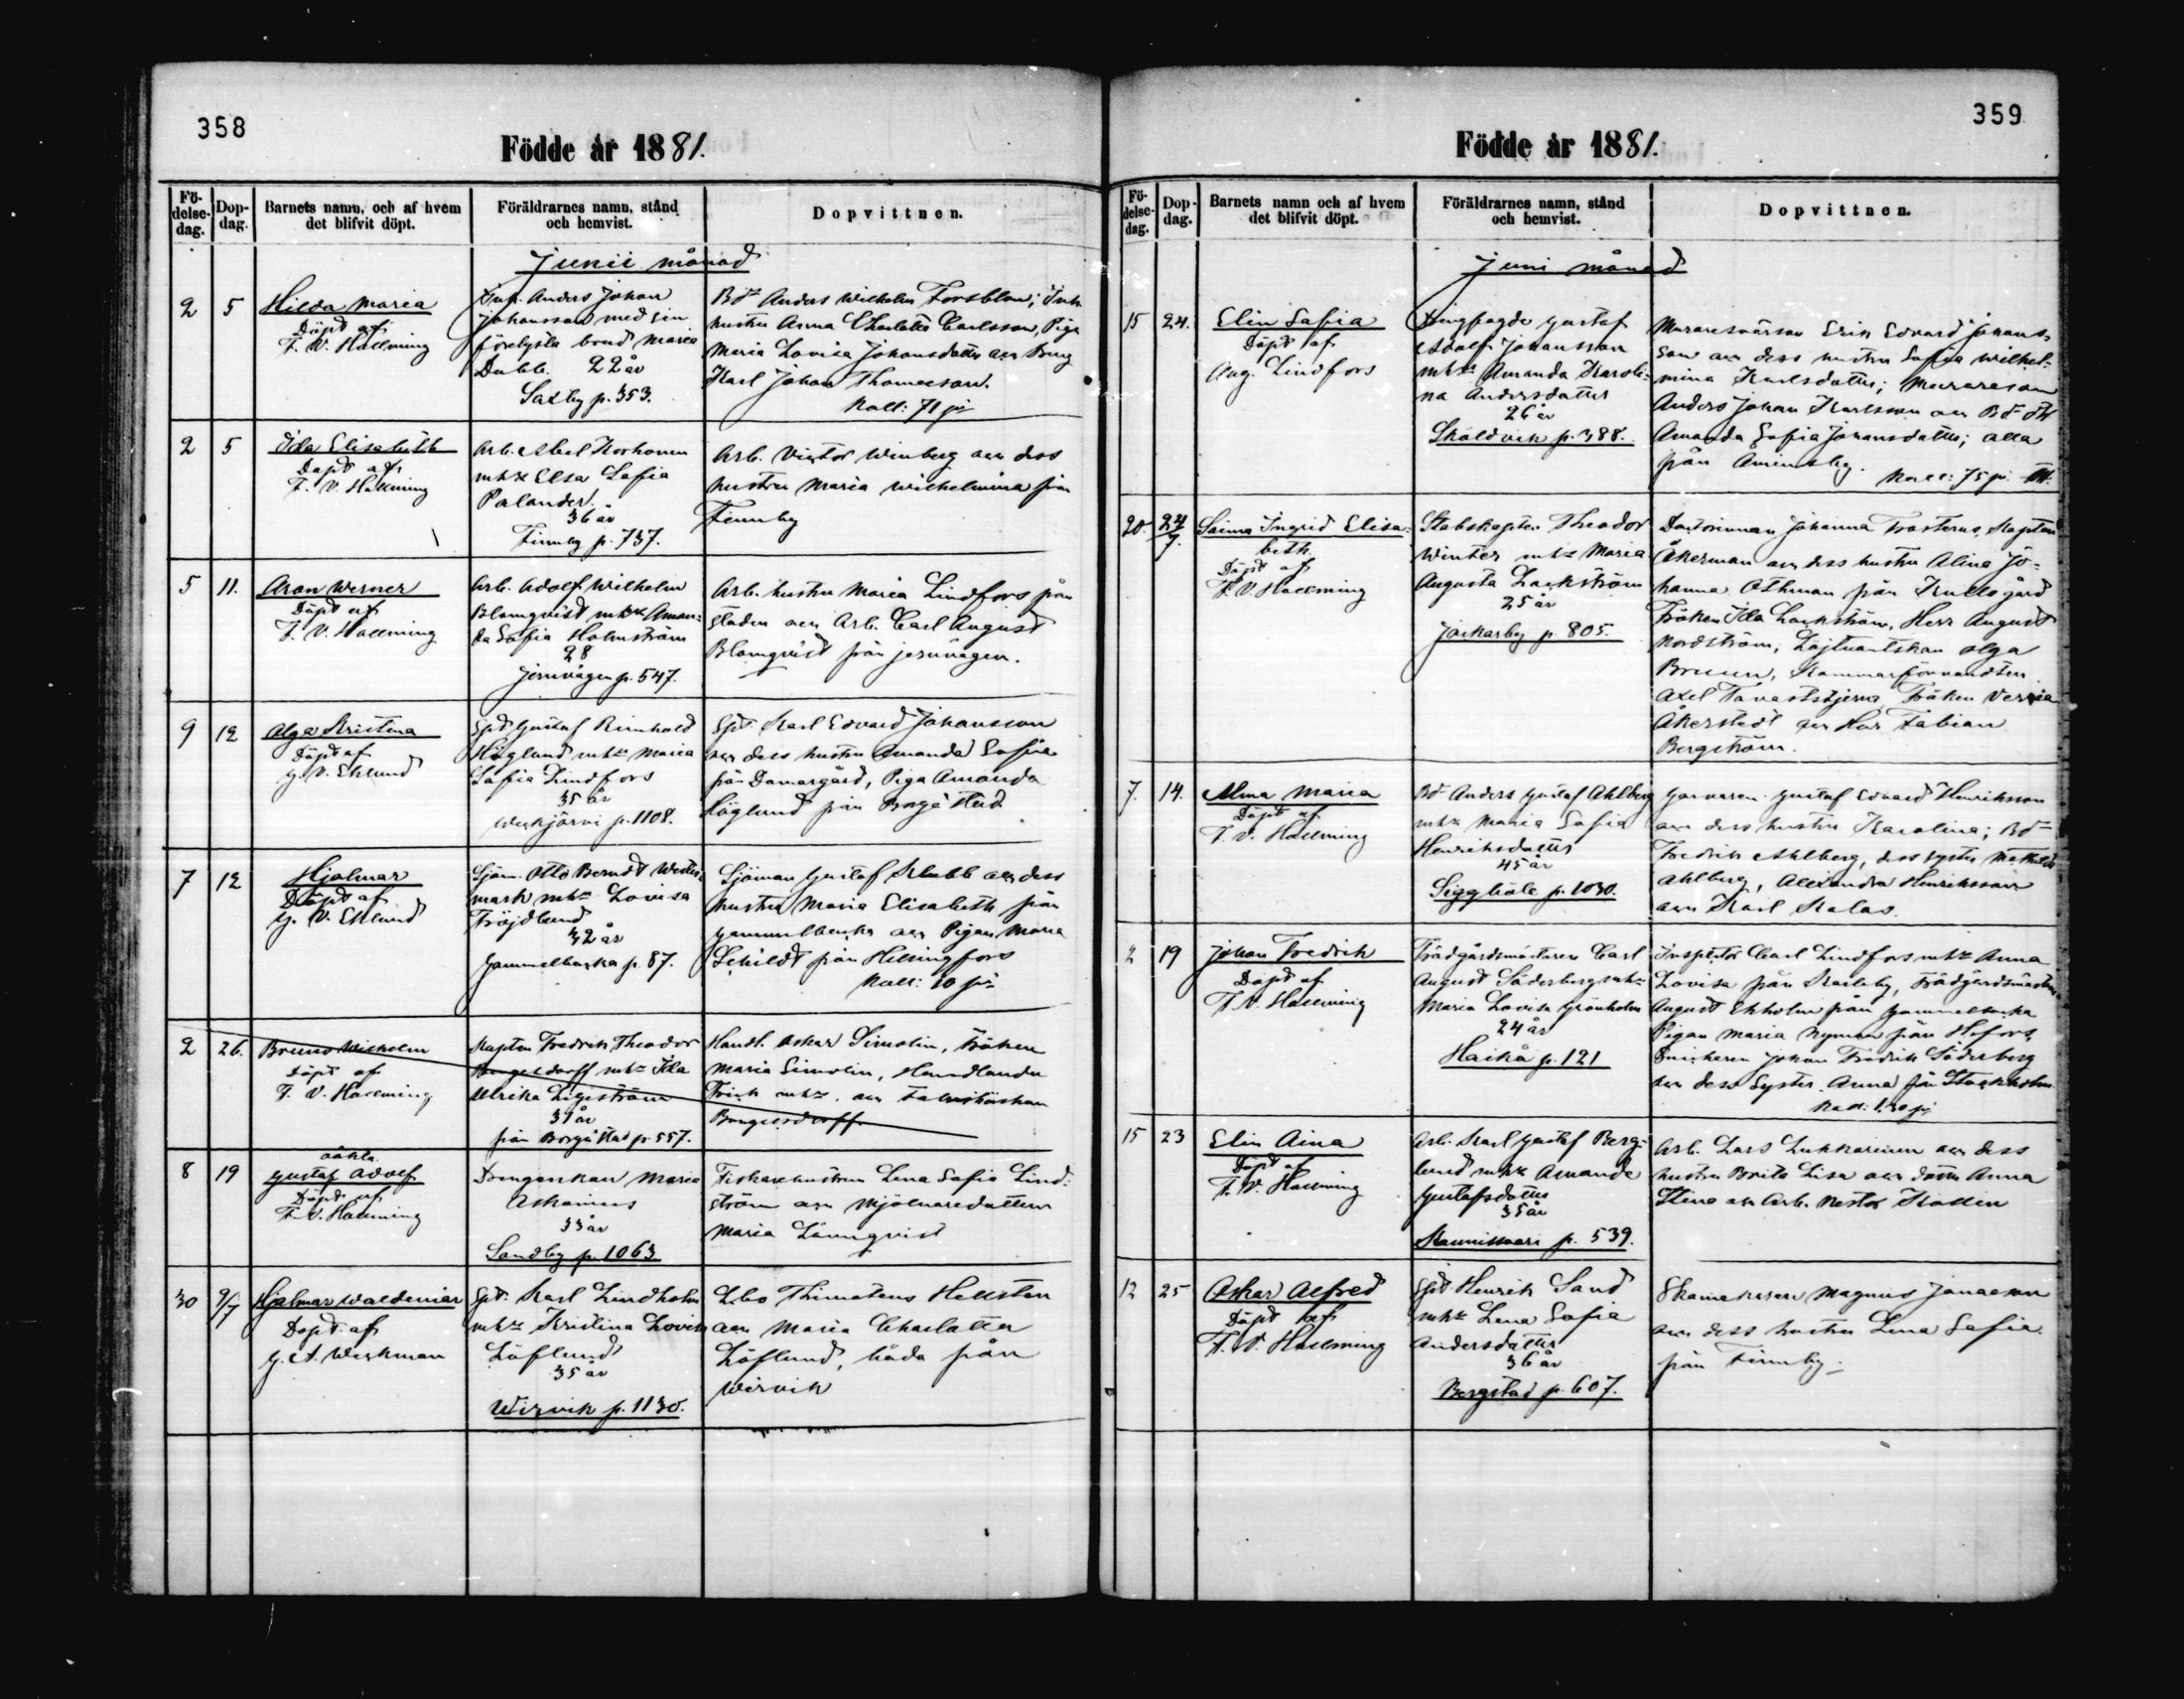 358
Födde år 1881.
Fö-
delse-
dag.
Dop-
dag.
Barnets namn, och af hvem
det blifvit döpt.
Föräldrarnes namn, stånd
och hemvist.
Dopvittnen.
Junii månad
2 5
Hilda Maria
Döpt af
F. V. Hallming
Anders Johan
Johansson med sin
förelysta brud Maria
22 år
Saxby p. 353.
Bd Anders Wilhelm Forsblom; Inh
hustru Anna Charlotta Carlsson, Piga
Maria Lovisa Johansdotter och Dreng
Karl Johan Thomeeson.
Koll: 71 pi
2 5
Ida Elisabeth
Döpt af
F. V. Hallming
Arb. Abel Korhonen
mhu Elsa Sofia
Palander.
36 år
Finnby p. 737.
Arb. Victor Winberg och dess
hustru Maria Wilhelmina från
Finnby
5 11.
Aron Werner
Döpt af
F. V. Hallming
Arb. Adolf Wilhelm
Blomqvist mhu Aman-
da Sofia Holmström
28
Jernvägen p. 547.
Arb. hustru Maria Lindfors från
staden och Arb. Carl August
Blomqvist från jernvägen.
9 12
Olga Kristina
Döpt af
G. V. Eklund
Spt Gustaf Reinhold
Höglund mhu Maria
Sofia Lindfors
35 år
Weckjärvi p. 1108.
Spt. Karl Edvard Johansson
och dess hustru Amanda Sofia
från Domargård, Piga Amanda
Höglund från Borgå stad
7 12
Hjalmar
Döpt af
G. V. Eklund
Sjöm. Otto Berndt Wester-
mark mhu Lovisa
Fröjdlund
42 år
Gammelbacka p. 87.
Sjöman Gustaf Stubb och dess
hustru Maria Elisabeth från
Gammelbacka och Pigan Maria
Schildt från Helsingfors
Koll: 10 pi
2 26.
Bruno Wilhelm
Döpt af
F. V. Hallming
Kapten Fredrik Theodor
mhu Ida
Ulrika Ligström
31 år
från Borgå stad p. 557.
Handl. Oskar Simolin, Fröken
Maria Simolin, Handlanden
Frick mhu. och
8 19
oäkta
Gustaf Adolf
Döpt af
F. V. Hallming
Drengenkan Maria
Askainus
33 år
Sandby p. 1063
Fiskarehustrun Lena Sofia Lind-
ström och Mjölnaredottern
Maria Lönnqvist
30 9/7
Hjalmar Waldemar
Döpt af
G. A. Werkman
Spt. Karl Lindholm
mhu Kristina Lovisa
Löflund
35 år
Wirvik p. 1130.
Thimoteus Hellsten
och Maria Charlotta
Löflund, båda från
Wirvik
359
Födde år 1881.
Fö-
delse-
dag.
Dop-
dag.
Barnets namn och af hvem
det blifvit döpt.
Föräldrarnes namn, stånd
och hemvist.
Dopvittnen.
Juni månad
15 24.
Elin Sofia
Döpt af
Aug. Lindfors
Gustaf
Adolf Johansson
mhu Amanda Karoli-
na Andersdotter
26 år
Sköldvik p. 388.
Erik Edvard Johans-
son och dess hustru Sofia Wilhel-
mina Karlsdotter; Murareson
Anders Johan Karlsson och Bd
Amanda Sofia Johansdotter; alla
från Äminsby. Koll: 75 pi
20. 24/7.
Saima Ingrid Elisa-
beth.
Döpt af
F. V. Hallming
Stabskapten Theodor
Winter mhu Maria
Augusta Lackström
25 år
Jackarby p. 805.
Doktorinnan Johanna Trasterus, Kapten
Åkerman och dess hustru Alina Jo-
hanna Othman från Kullogård
Fröken Ida Lackström, Herr August
Nordström, Löjtnantskan Olga
Bruun, Kammarförvandten
Axel Tavaststjerna, Fröken Verna
Åkerstedt och Herr Fabian
Bergström.
7. 14.
Alma Maria
Döpt af
F. V. Hallming
Bd Anders Gustaf Ahlberg
mhu Maria Sofia
Henriksdotter
45 år
Siggböle p. 1030.
Garvaren Gustaf Edvard Henriksson
och dess hustru Karolina; Bd
Fredrik Ahlberg, dess syster Mathilda
Ahlberg, Alexandra Henriksson
och Karl Kalas.
2 19
Johan Fredrik
Döpt af
F. V. Hallming
Trädgårdsmästaren Carl
August Söderberg mhu
Maria Lovisa Grönholm
24 år
Haikå p. 121
Inspektor Carl Lindfors mhu Anna
Lovisa från Karleby, Trädgårdsmästare
August Ekholm från Gammelbacka
Pigan Maria Nyman från H:fors,
Snickaren Johan Fredrik Söderberg
och dess syster Anna från Stockholm
Koll: 1.20 pi
15 23
Elin Aina
Döpt af
F. V. Hallming
Arb. Karl Gustaf Berg-
lund mhu Amanda
Gustafsdotter
35 år
Kaunissaari p. 539.
Arb. Lars Lukkarinen och dess
hustru Brita Lisa och dotter Anna
Stina och Arb. Nestor Kallin
12 25
Oskar Alfred
Döpt af
F. V. Hallming
Spt Henrik Sand
mhu Lena Sofia
Andersdotter
36 år
Bergstad p. 607.
Skomakaren Magnus Jonaeson
och dess hustru Lena Sofia
från Finnby.